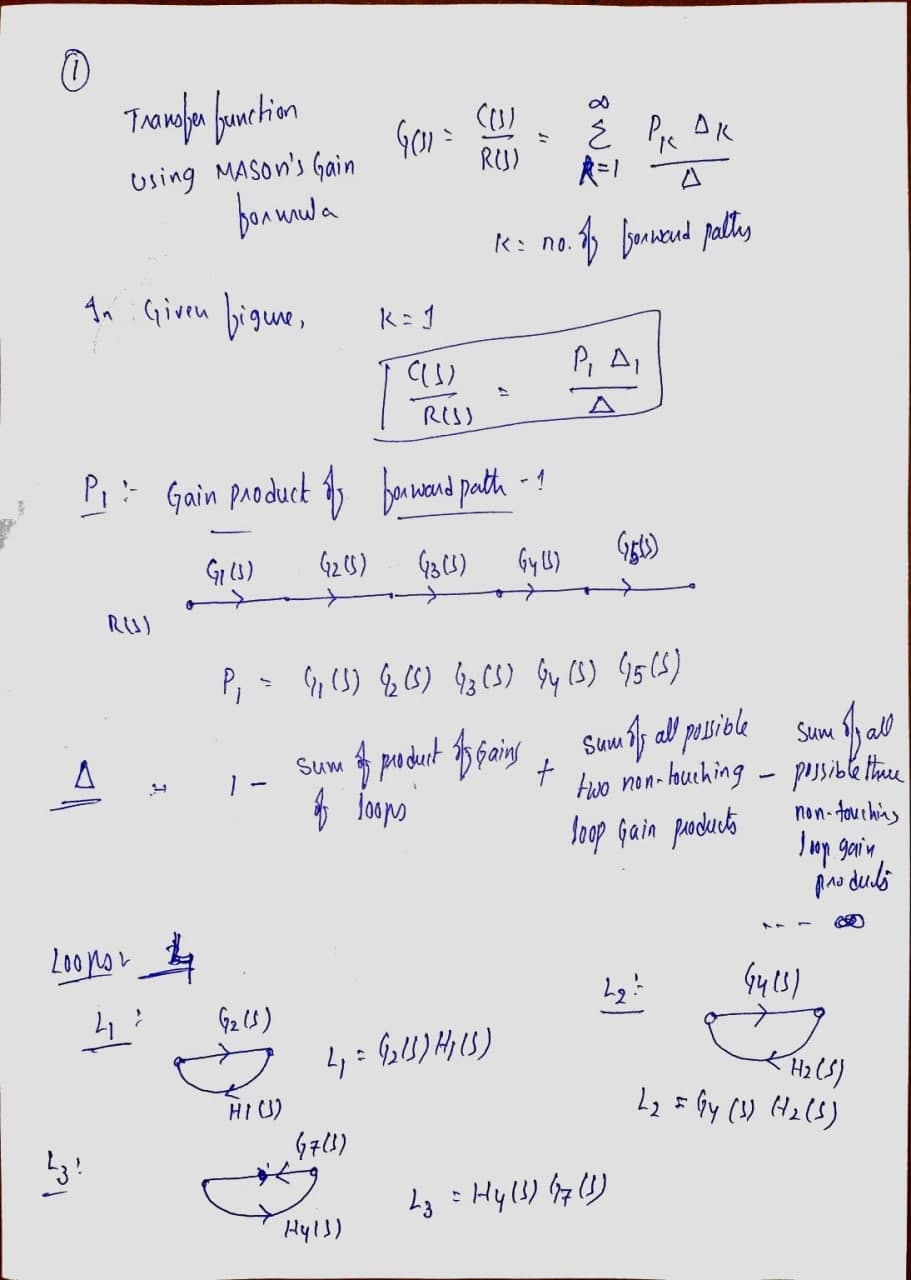 ①
Transfer function
using MASON's Gain
formula
G(s) = C(s) / R(s) = ∞ Σ k=1 P_K Δ_K / Δ
K = no. of forward paths
In Given figure, K = 1
C(s) / R(s) = P₁ Δ₁ / Δ
P₁ :- Gain product of forward path - 1
G1(s) G2(s) G3(s) G4(s) G5(s)
R(s)
P₁ = G₁(s) G₂(s) G₃(s) G₄(s) G5(s)
Δ :- 1 - sum of product of gains of loops + sum of all possible two non-touching loop gain products - sum of all possible three non-touching loop gain products
Loops
L₁ :
G2(s)
H1(s)
L₁ = G₂(s) H₁(s)
L₂ :
G4(s)
H2(s)
L₂ = G4(s) H2(s)
L₃ :
G7(s)
H4(s)
L₃ = H4(s) G7(s)